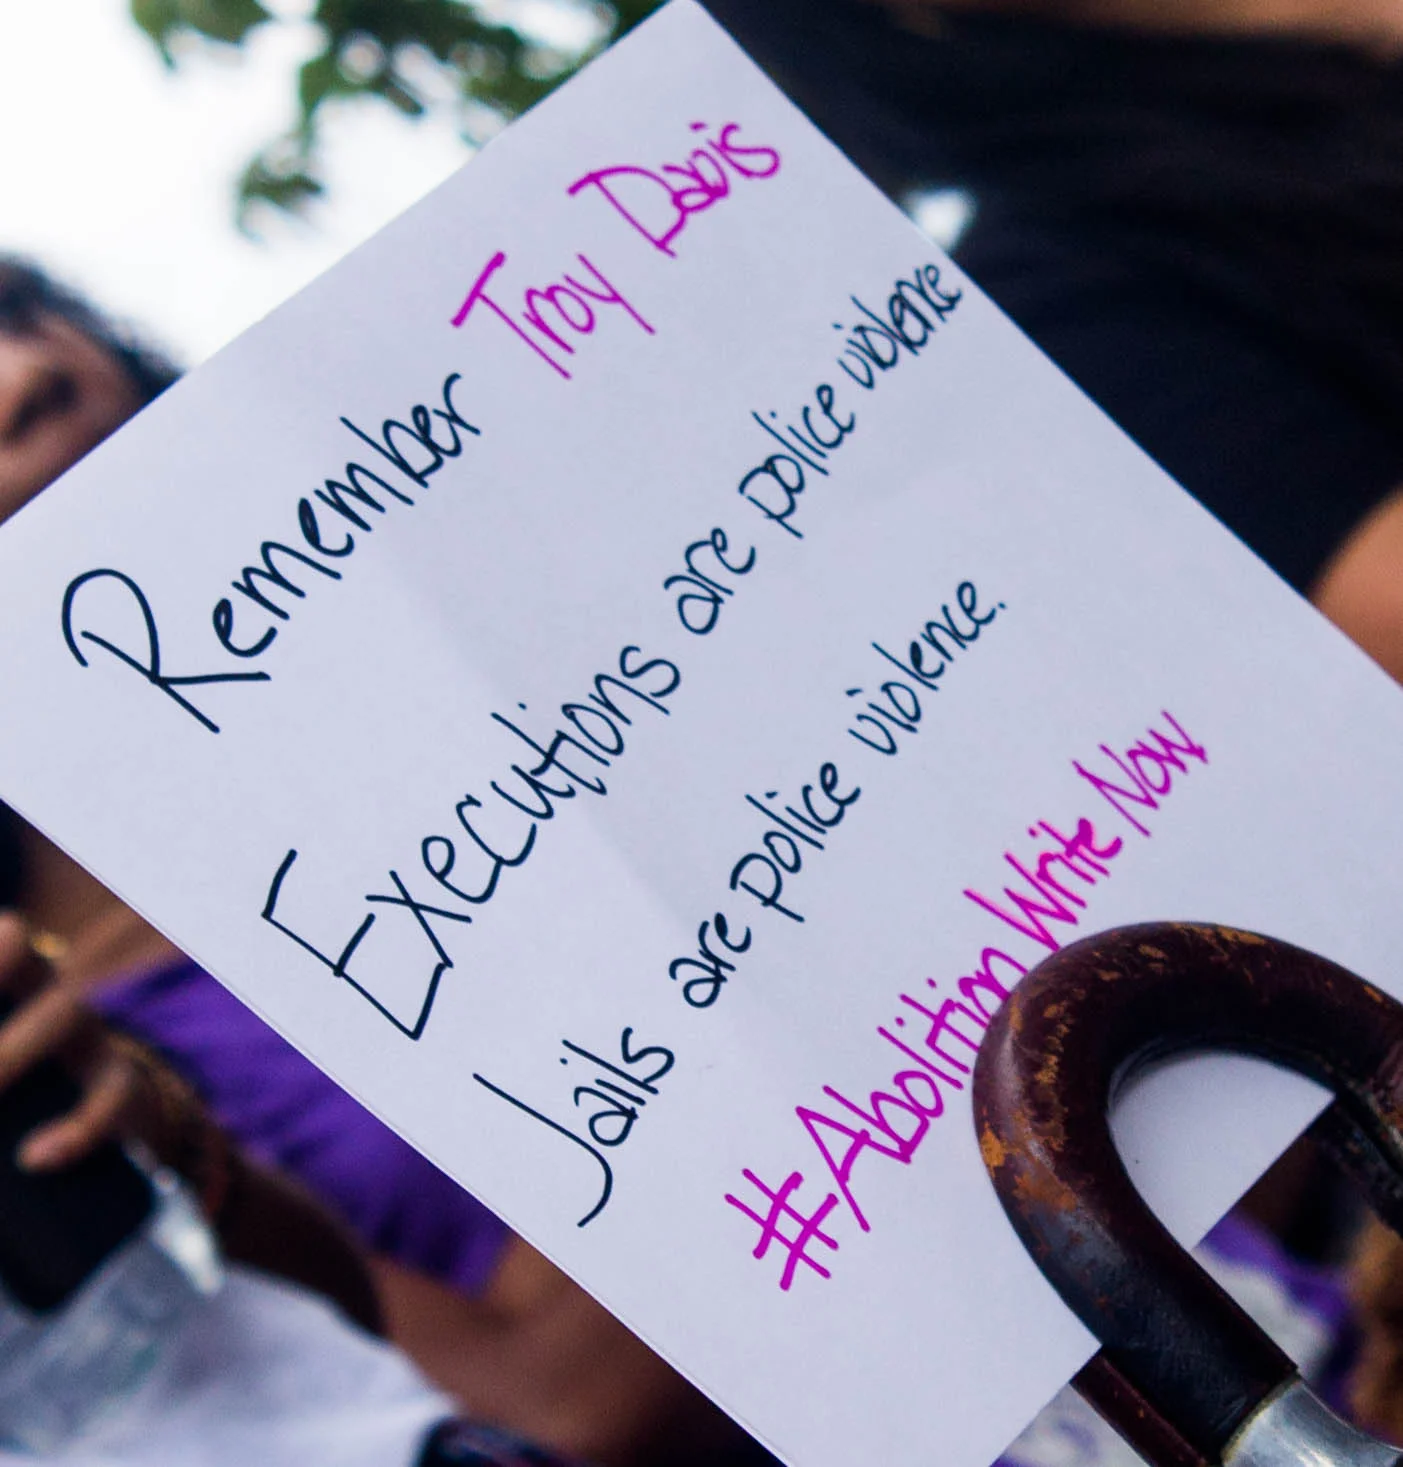 Remember Troy Davis
Executions are police violence
Jails are police violence.
#Abolition Write Now